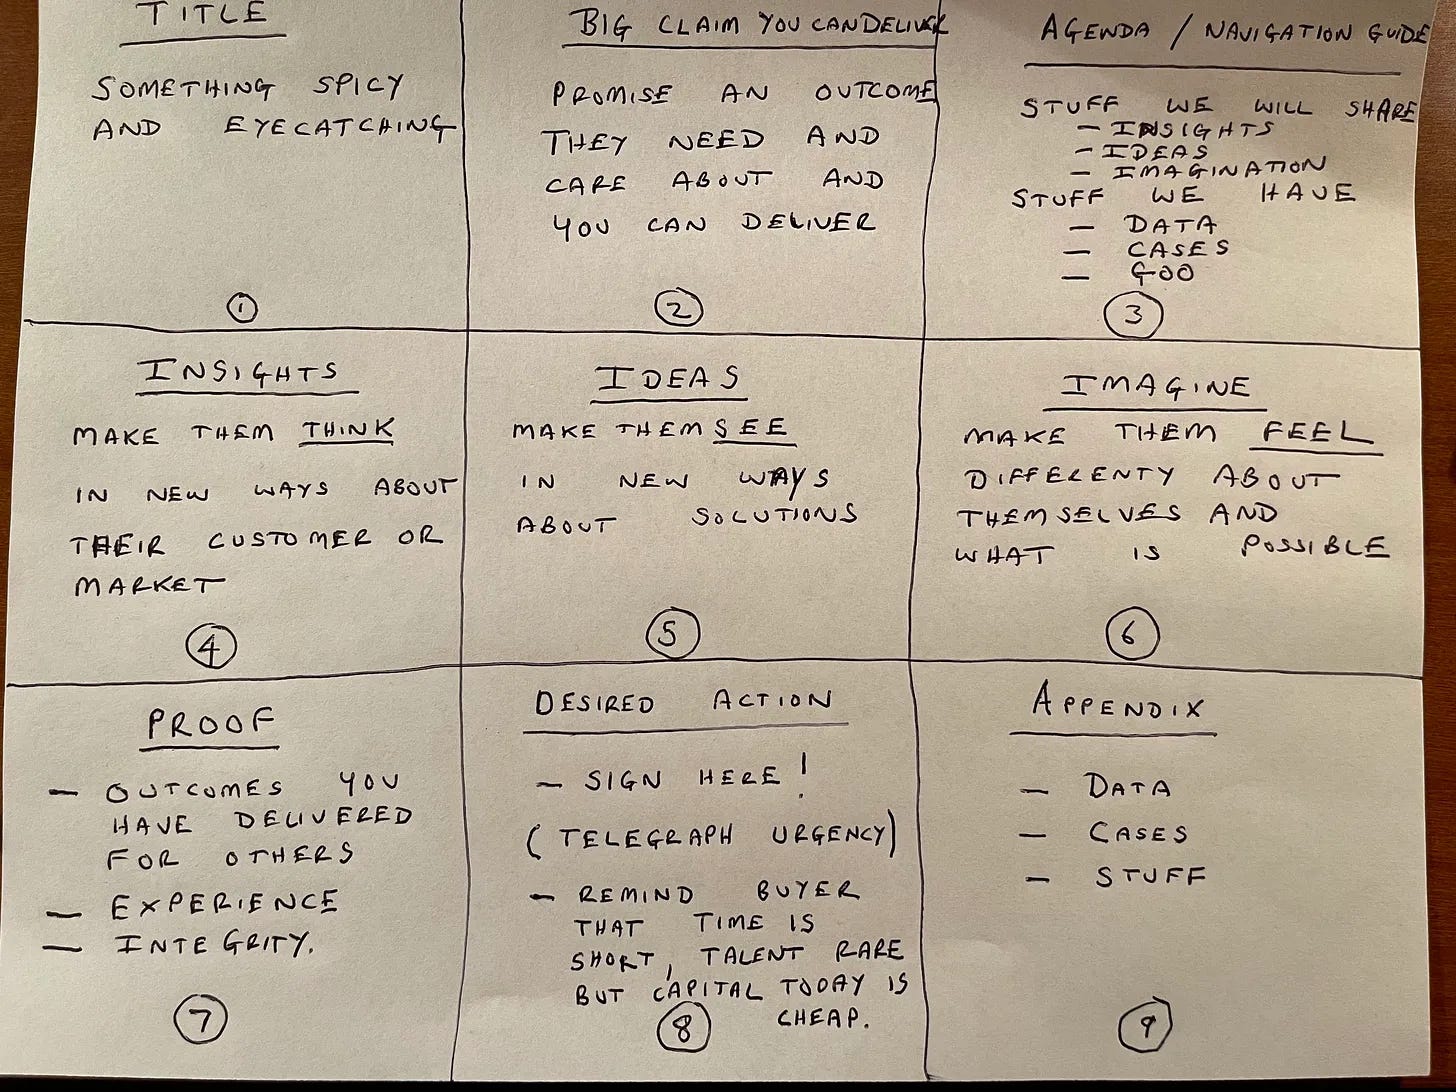 TITLE
SOMETHING SPICY
AND EYECATCHING
1
BIG CLAIM YOU CAN DELIVER
PROMISE AN OUTCOME
THEY NEED AND
CARE ABOUT AND
YOU CAN DELIVER
2
AGENDA / NAVIGATION GUIDE
STUFF WE WILL SHARE
- INSIGHTS
- IDEAS
- IMAGINATION
STUFF WE HAVE
- DATA
- CASES
- GOO
3
INSIGHTS
MAKE THEM THINK
IN NEW WAYS ABOUT
THEIR CUSTOMER OR
MARKET
4
IDEAS
MAKE THEM SEE
IN NEW WAYS
ABOUT SOLUTIONS
5
IMAGINE
MAKE THEM FEEL
DIFFERENTY ABOUT
THEMSELVES AND
WHAT IS POSSIBLE
6
PROOF
- OUTCOMES YOU
HAVE DELIVERED
FOR OTHERS
- EXPERIENCE
- INTEGRITY.
7
DESIRED ACTION
- SIGN HERE!
(TELEGRAPH URGENCY)
- REMIND BUYER
THAT TIME IS
SHORT, TALENT RARE
BUT CAPITAL TODAY IS
CHEAP.
8
APPENDIX
- DATA
- CASES
- STUFF
9